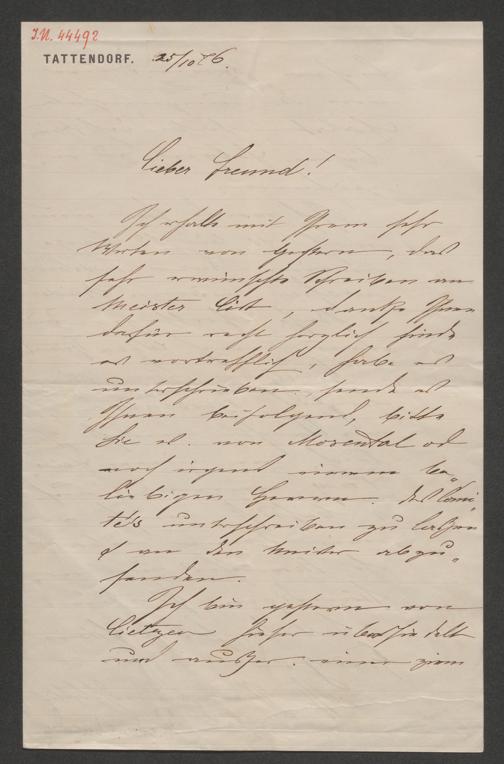 I.N. 44492
TATTENDORF. 25/10 76.
Lieber Freund!
Ich erhalte mit Ihrem sehr
Werten von gestern, das
sehr erwünschte Schreiben an
Meister List, danke Ihnen
dafür recht herzlich finde
es vortrefflich, habe es
unterschrieben sende es
Ihnen beifolgend, bitte
Sie es von Mosenthal od
noch irgend einem be-
liebigen Herrn des Comi-
té's unterschreiben zu lassen
& an den Meister abzu-
senden.
Ich bin gestern von
hieher übersiedelt
und außer einer